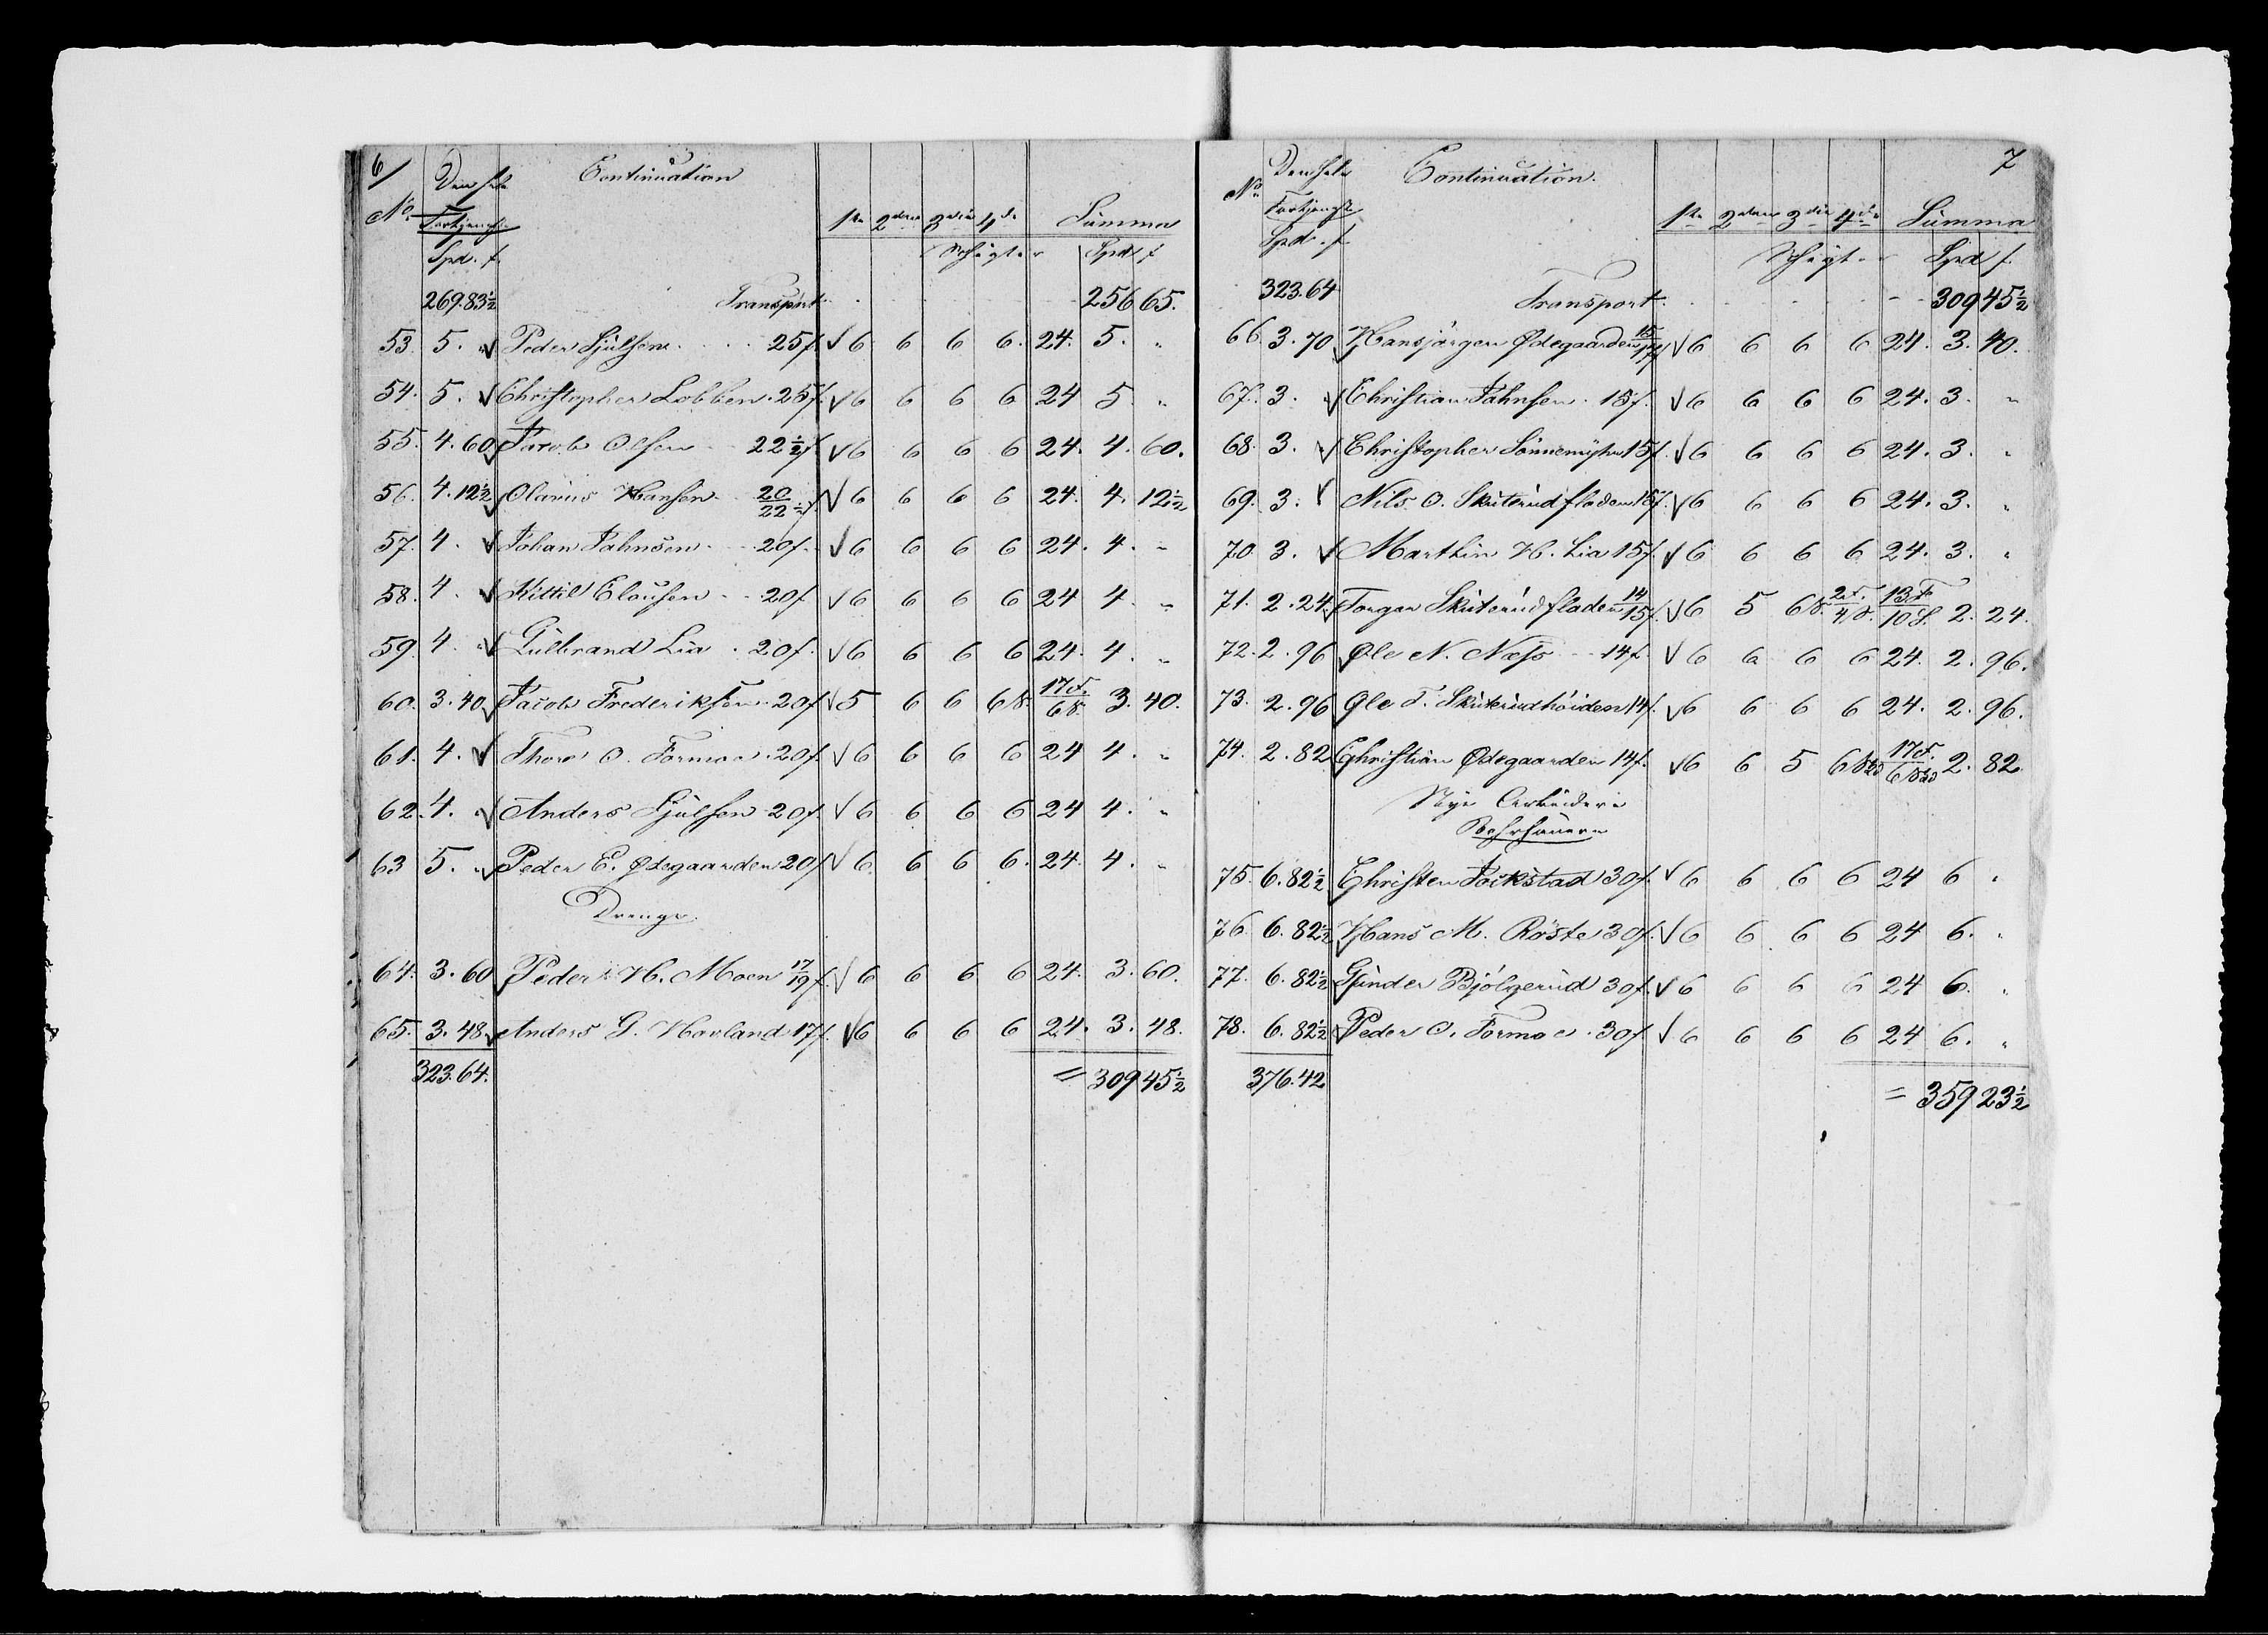 6/
No. Den hele Fortjeneste Continuation 1te 2den 3die 4de Summa
Spd. f. Spd f
269.83½ Transport 256 65.
53. 5. " Peder Hjulsen 25f. 6 6 6 6. 24. 5. "
54. 5. Christopher Lobben. 25f. 6 6 6 6 24 5. "
55. 4.60 Jacob Olsen 22½f. 6 6 6 6 24. 4. 60.
56. 4.12½ Olaus Hansen 20/22½f. 6 6 6 6 24. 4. 12½
57. 4. Johan Jahnsen 20f. 6 6 6 6 24. 4. "
58. 4. Kittil Clausen 20f 6 6 6 6 24 4. "
59. 4. Gulbrand Lia 20f. 6 6 6 6 24. 4. "
60. 3.40 Jacob Frederiksen 20f 5 6 6 6 8. 17F./68. 3. 40.
61. 4. Thore O. Formoe 20f. 6 6 6 6 24 4. "
62. 4. Anders Hjulsen 20f. 6 6 6 6 24 4. "
63 5. " Peder E. Ødegaarden 20f 6. 6 6 6. 24. 4. "
Drenge.
64. 3.60 Peder H. Moen 17/19f. 6 6 6 6 24. 3. 60.
65. 3.48. Anders G. Hovland 17f. 6 6 6 6 24. 3. 48.
323.64. = 309 45½
7
No. Den hele Fortjeneste Continuation. 1te 2den 3die 4de Summa
Spd. f. Spd f.
323.64 Transport. 309 45½
66. 3.70 Hansjørgen Ødegaarden 15/17f 6 6 6 6 24. 3. 40.
67. 3. Christian Jahnsen. 15f. 6 6 6 6 24. 3. "
68. 3. Christopher 15f. 6 6 6 6 24. 3. "
69. 3. Nils O. Skuterudfladen 15f. 6 6 6 6 24. 3. "
70. 3. Marthin H. Lia 15f. 6 6 6 6 24. 3. "
71. 2.24. Torger Skuterudfladen 14/15f. 6 5 6 8. 2F./4S. 13F/10S. 2. 24.
72. 2.96 Ole N. Næss 14f. 6 6 6 6 24. 2. 96.
73. 2.96 Ole T. Skuterudhøiden 14f. 6 6 6 6 24. 2. 96.
74. 2.82 Christian Ødegaarden 14f. 6 6 5 6 17F. 2. 82.
Nye Arbeidere
Borhauere
75. 6.82½ Christen Foikstad 30f. 6 6 6 6 24 6 "
76. 6.82½ Hans M. Røste 30f. 6 6 6 6 24 6. "
77. 6.82½ Gunder Bjølgerud 30f. 6 6 6 6 24 6. "
78. 6.82½ Peder O. Formoe. 30f. 6 6 6 6 24 6. "
376.42 = 359 23½